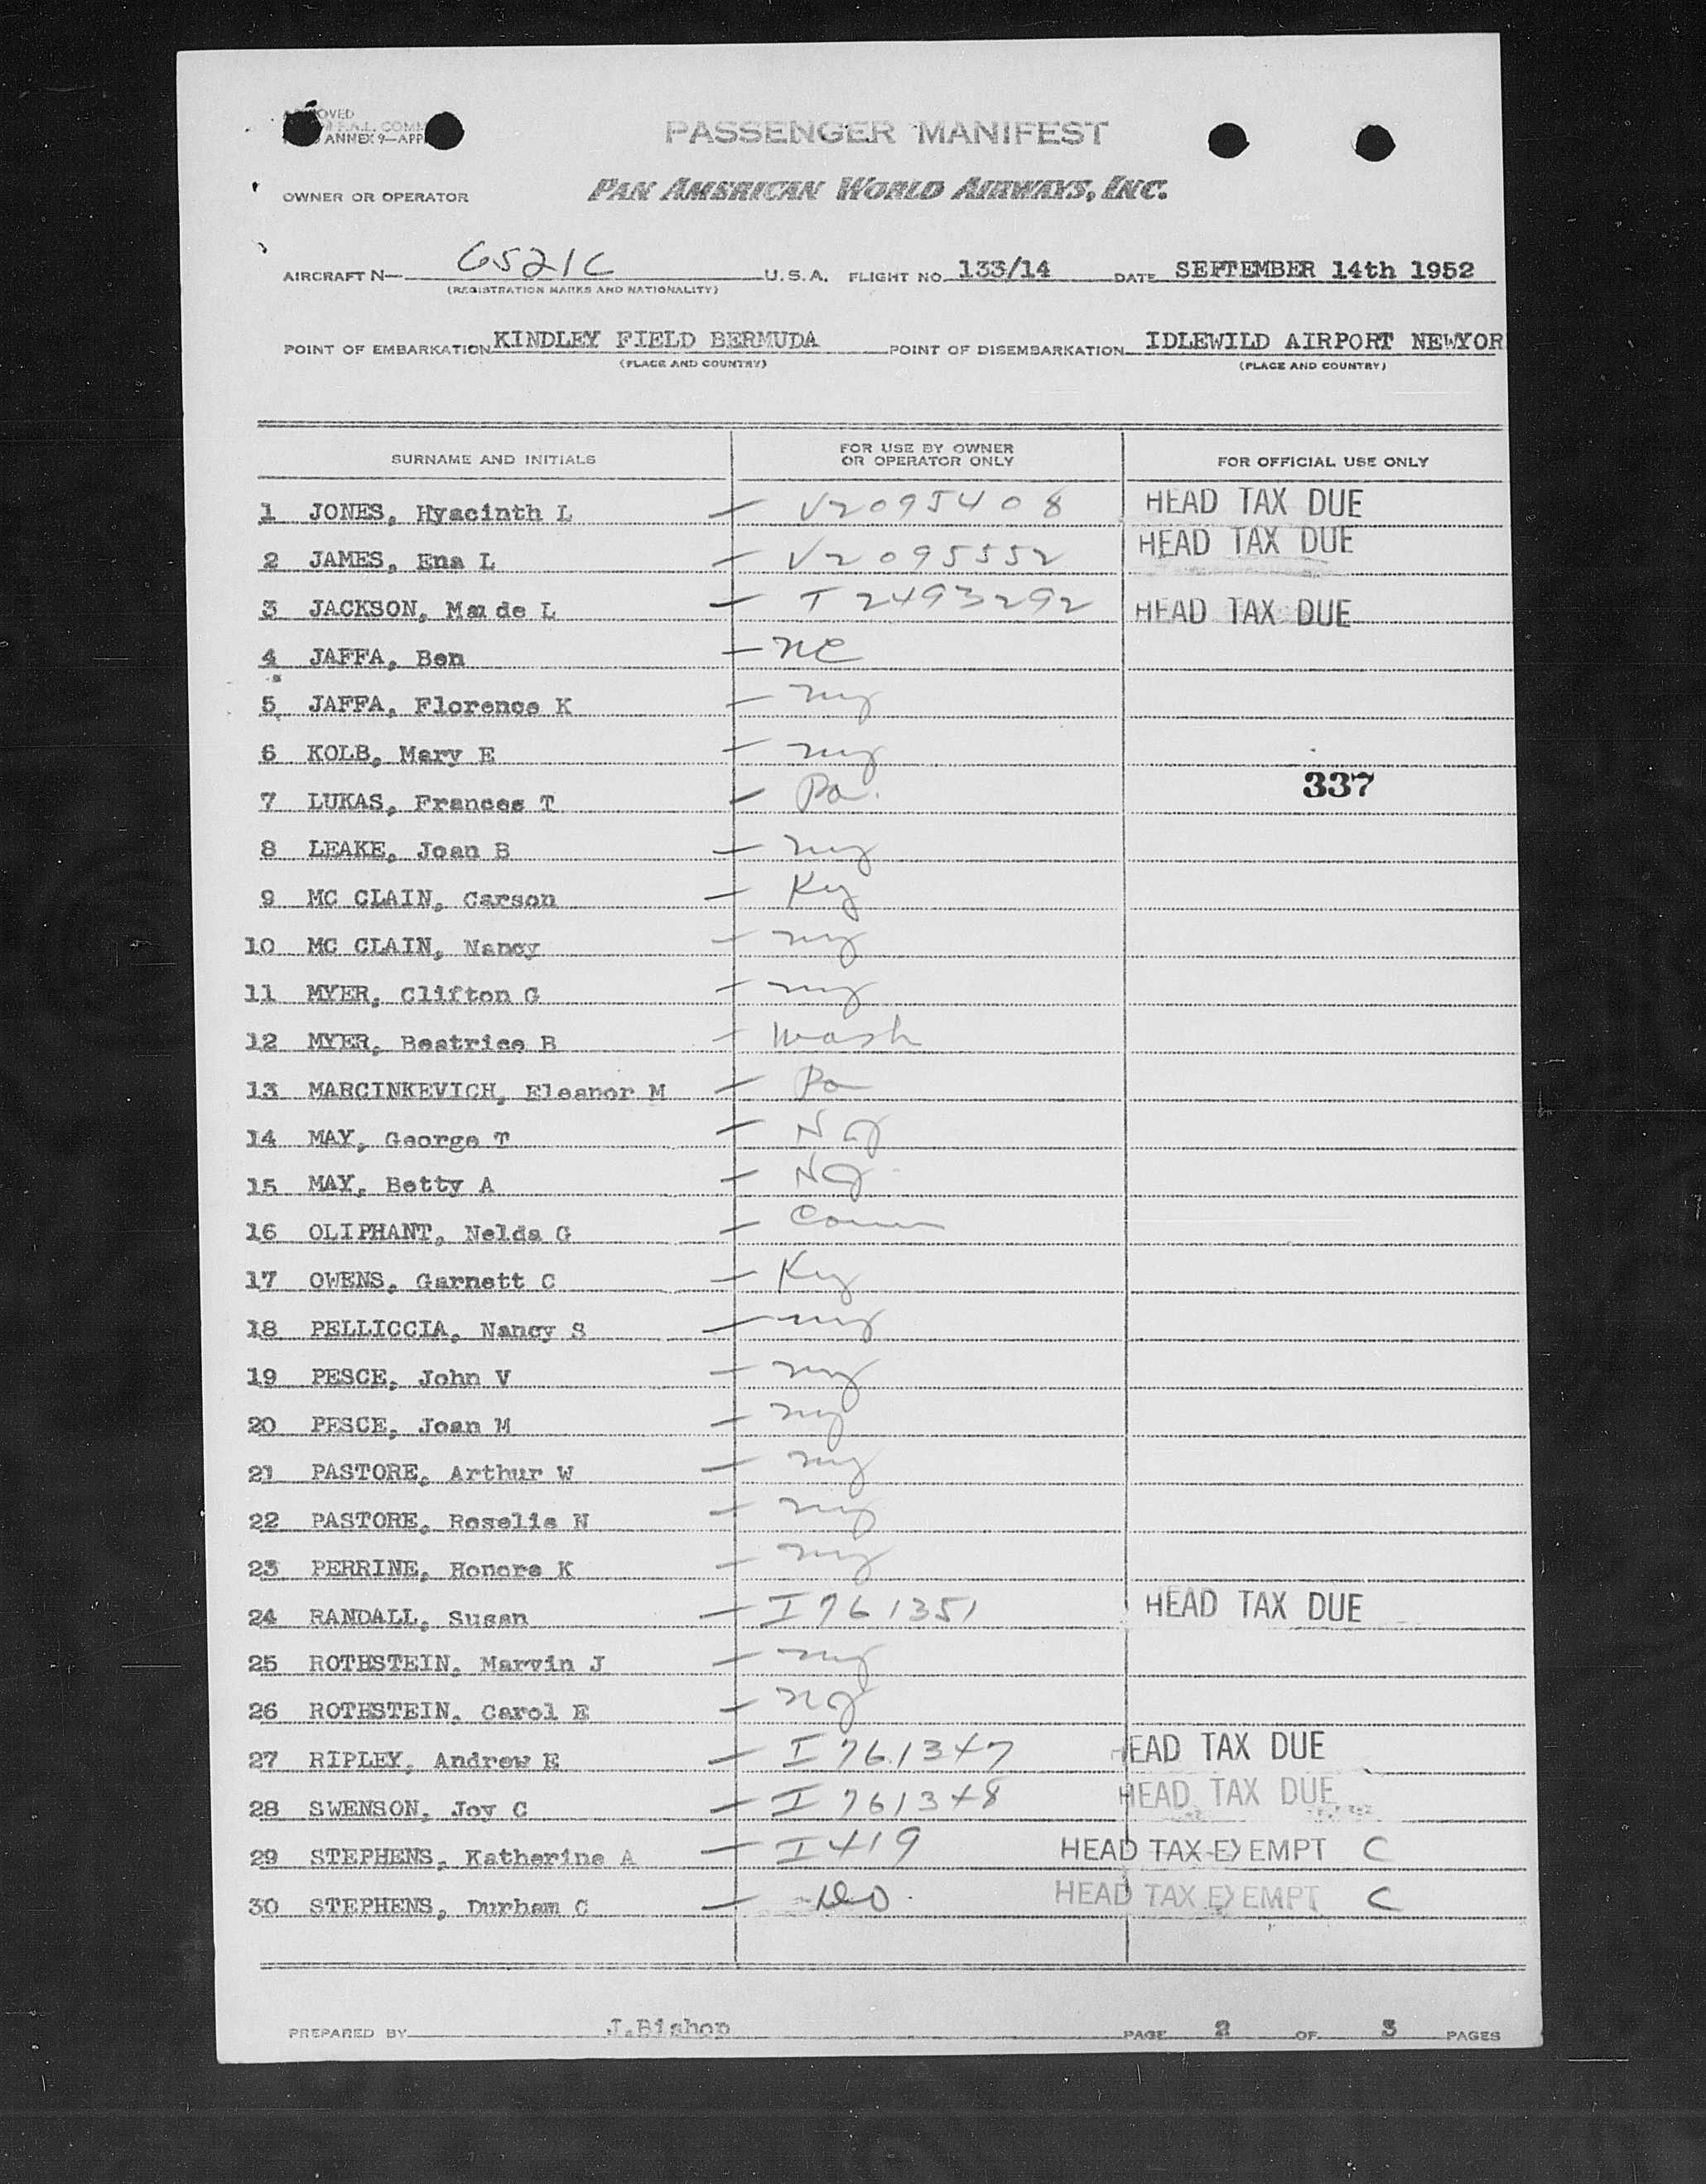 PASSENGER MANIFEST
ANNEX 9—APP
OWNER OR OPERATOR PAN AMERICAN WORLD AIRWAYS, INC.
AIRCRAFT N— 6521C U.S.A. FLIGHT NO. 133/14 DATE SEPTEMBER 14th 1952
(REGISTRATION MARKS AND NATIONALITY)
POINT OF EMBARKATION KINDLEY FIELD BERMUDA POINT OF DISEMBARKATION IDLEWILD AIRPORT NEWYOR
(PLACE AND COUNTRY) (PLACE AND COUNTRY)
SURNAME AND INITIALS FOR USE BY OWNER OR OPERATOR ONLY FOR OFFICIAL USE ONLY
1 JONES, Hyacinth L — V2095408 HEAD TAX DUE
2 JAMES, Ena L — V2095552 HEAD TAX DUE
3 JACKSON, Maude L — I2493292 HEAD TAX DUE
4 JAFFA, Ben — NC
5 JAFFA, Florence K — ny
6 KOLB, Mary E — ny
337
7 LUKAS, Frances T — Pa.
8 LEAKE, Joan B — ny
9 MC CLAIN, Carson — Ky
10 MC CLAIN, Nancy — ny
11 MYER, Clifton G — ny
12 MYER, Beatrice B — Wash
13 MARCINKEVICH, Eleanor M — Pa
14 MAY, George T — NJ
15 MAY, Betty A — NJ
16 OLIPHANT, Nelda G — Conn
17 OWENS, Garnett C — Ky
18 PELLICCIA, Nancy S — ny
19 PESCE, John V — ny
20 PESCE, Joan M — ny
21 PASTORE, Arthur W — ny
22 PASTORE, Roselie N — ny
23 PERRINE, Honora K — ny
24 RANDALL, Susan — I761351 HEAD TAX DUE
25 ROTHSTEIN, Marvin J — ny
26 ROTHSTEIN, Carol E — NJ
27 RIPLEY, Andrew E — I761347 HEAD TAX DUE
28 SWENSON, Joy C — I761348 HEAD TAX DUE
29 STEPHENS, Katherine A — I419 HEAD TAX EXEMPT C
30 STEPHENS, Durham C — DO. HEAD TAX EXEMPT C
PREPARED BY J.Bishop PAGE 2 OF 3 PAGES